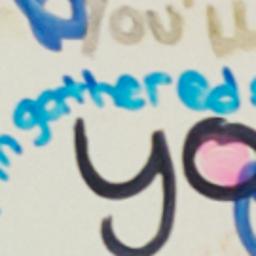 You'll
gathered
yo